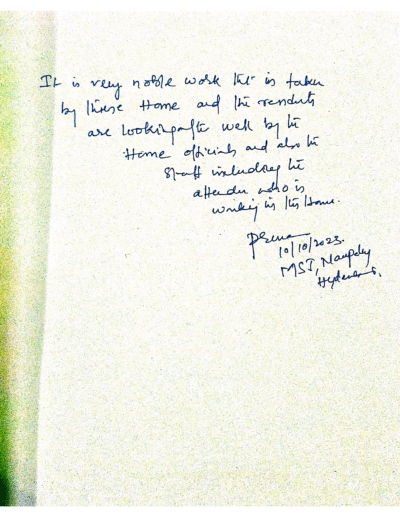 It is very noble work that is taken
by these Home and the residents
are looking after well by the
Home officials and also the
Staff including the
attender who is
working in this Home.
10/10/2023.
MSJ,
Hyderabad.